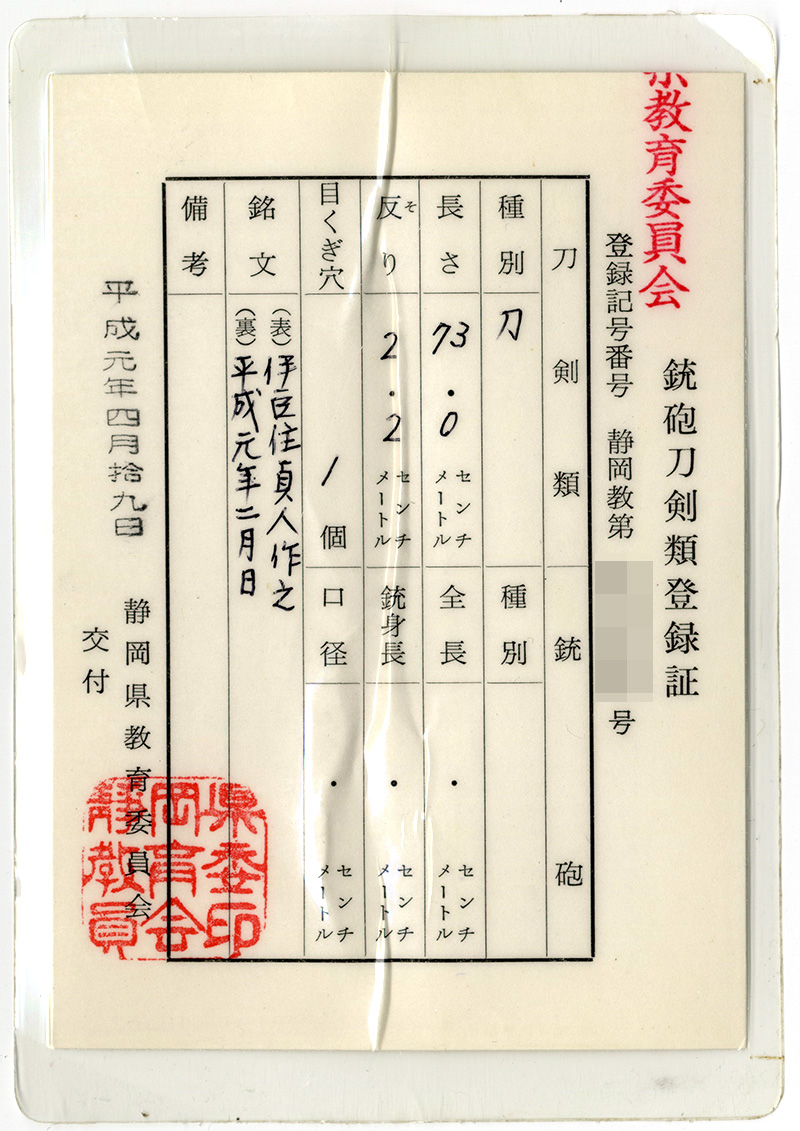 教育委員会
銃砲刀剣類登録証
登録記号番号 静岡教第 号
刀剣類
種別 刀
長さ 73.0 センチメートル
反り そ 2.2 センチメートル
目くぎ穴 1個
銘文 (表)伊豆住貞人作之
(裏)平成元年二月日
備考
銃砲
種別
全長 ・ センチメートル
銃身長 ・ センチメートル
口径 ・ センチメートル
平成元年四月拾九日
静岡県教育委員会
交付
静岡県
教育委
員会印